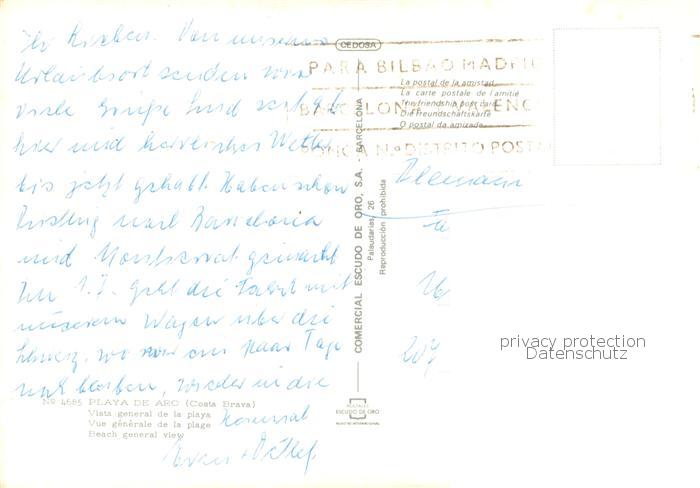 Ihr Lieben. Von unserem
Urlaubsort senden wir
viele Grüße. Sind seit
hier und herrliches Wetter
bis jetzt gehabt. Haben schon
Ausflug nach Barcelona
und Montserrat gemacht
Am 1.7. geht die Fahrt mit
unserem Wagen über die
Schweiz, wo wir ein paar Tage
noch bleiben, wieder in die
Heimat
+ Detlef
CEDOSA
PARA BILBAO MADRI
BARCELONA VALENC
PONGA Nº DISTRITO POSTA
La postal de la amistad
La carte postale de l'amitié
The friendship post card
Die Freundschaftskarte
O postal da amizade
COMERCIAL ESCUDO DE ORO, S.A. - BARCELONA
Palaudarias, 26
Reproducción prohibida
Alemania
privacy protection
Datenschutz
Nº 4685 PLAYA DE ARO (Costa Brava)
Vista general de la playa
Vue générale de la plage
Beach general view
POSTALES
ESCUDO DE ORO